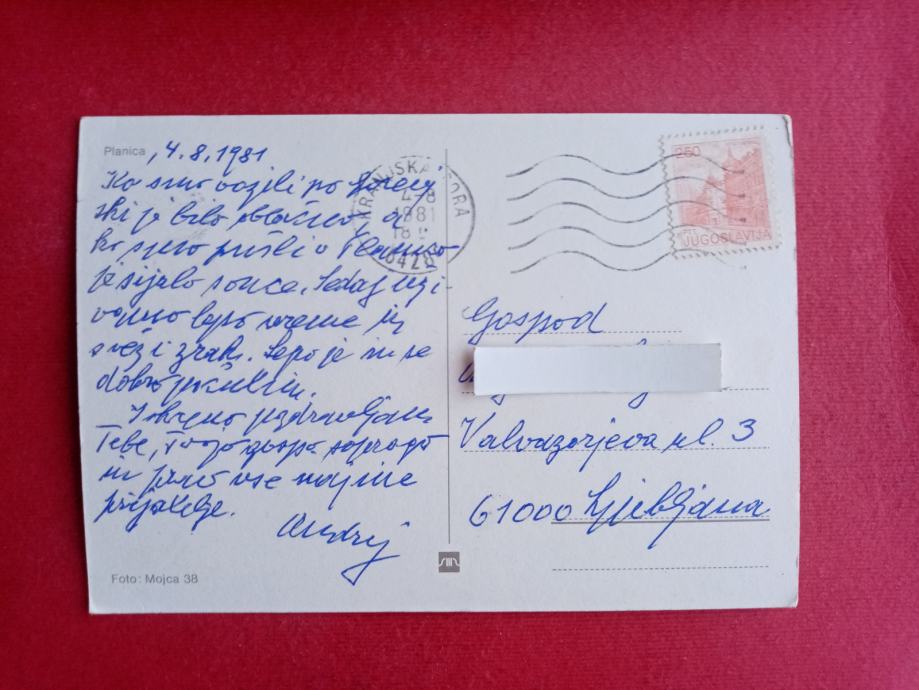 Planica, 4.8.1981
Ko smo vozili po Gorenj
ski je bilo oblačno a
ko smo prišli v Planico
je sijalo sonce. Sedaj uži
vamo lepo vreme in
svež zrak. Lepo je in se
dobro počutim.
Iskreno pozdravljam
Tebe, Tvojo gospo soprogo
in prav vse najine
prijatelje.
Andrej
Foto: Mojca 38
KRANJSKA GORA
4-8
1981
18
64280
2.50
JUGOSLAVIJA
Gospod
Valvazorjeva ul. 3
61000 Ljubljana